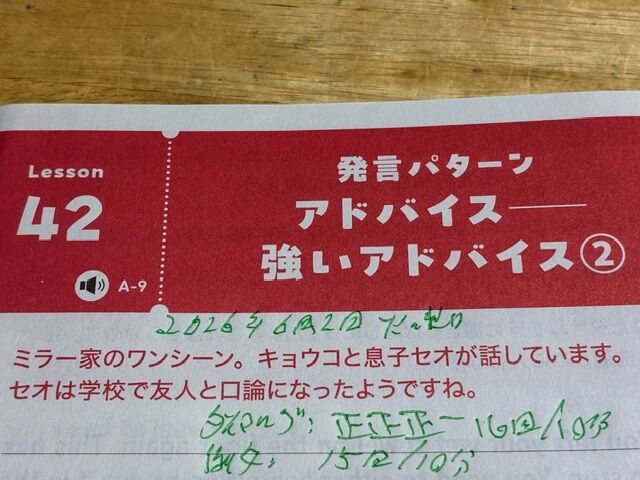 Lesson
42
A-9
発言パターン
アドバイス――
強いアドバイス②
2026年6月2日
ミラー家のワンシーン。キョウコと息子セオが話しています。
セオは学校で友人と口論になったようですね。
正正正一 16回/10分
15回/10分